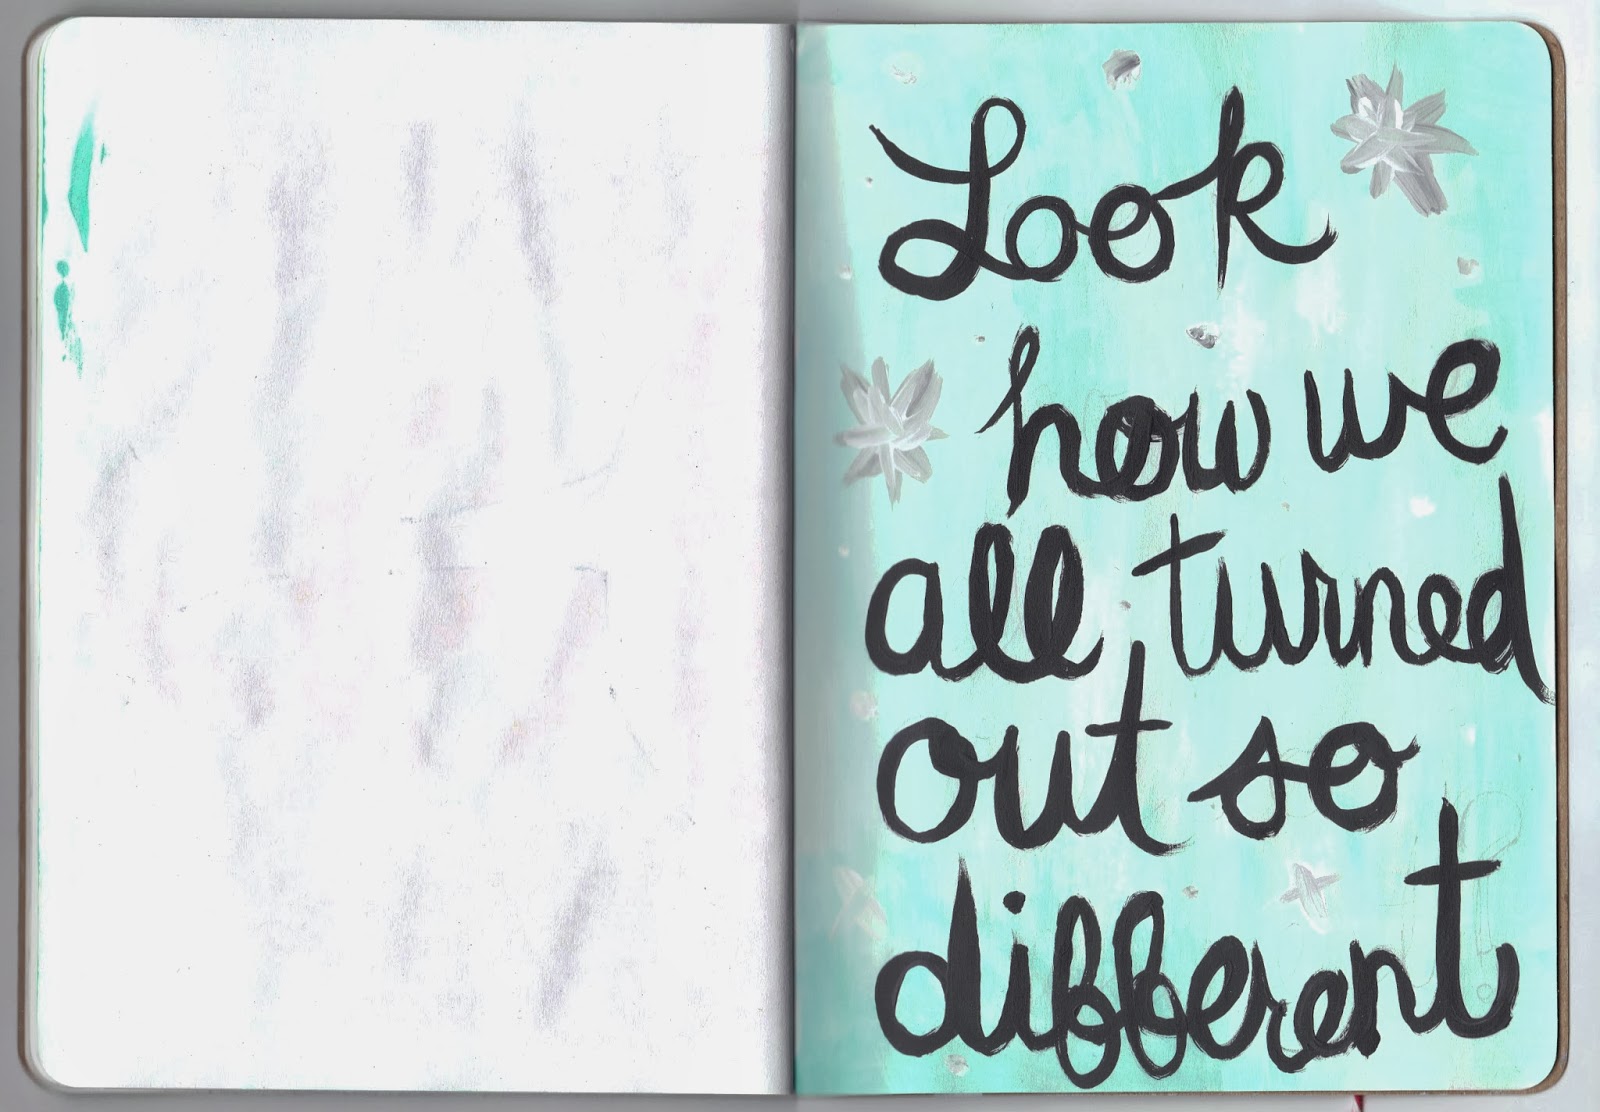 Look
how we
all turned
out so
different